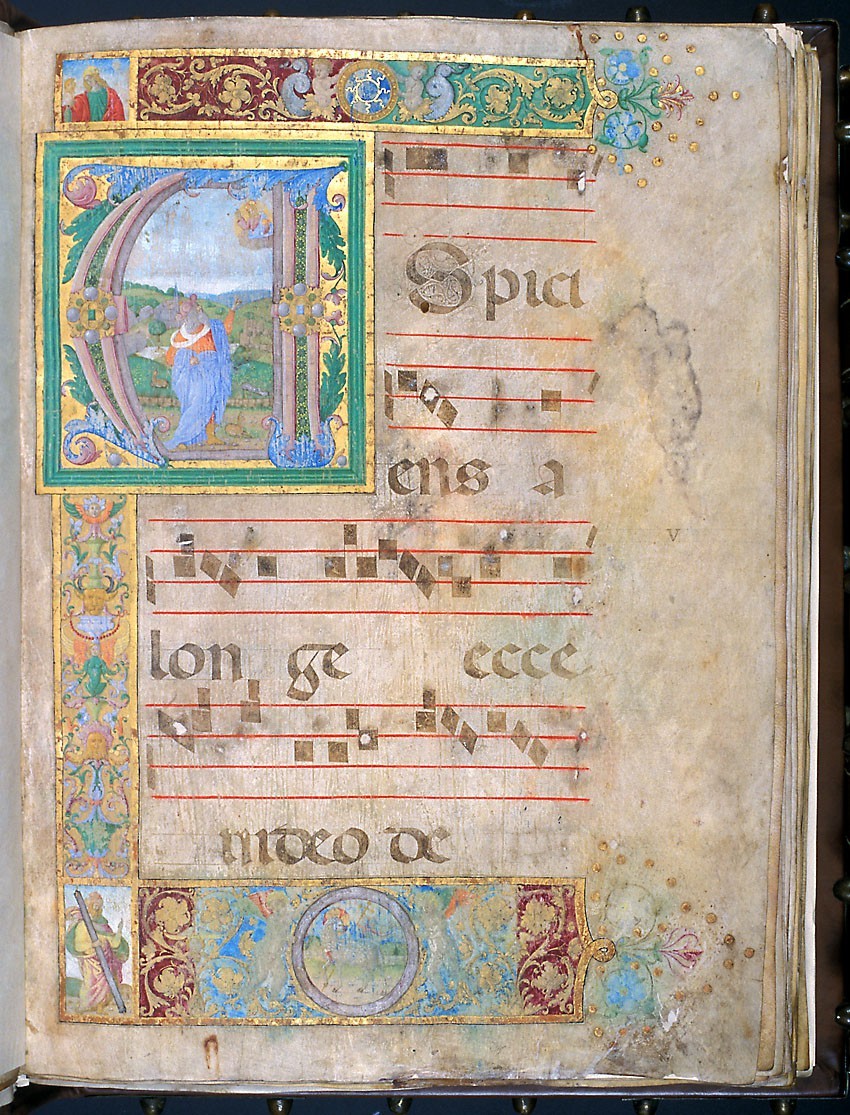 A Spici
ens a
lon ge ecce
uideo de
V